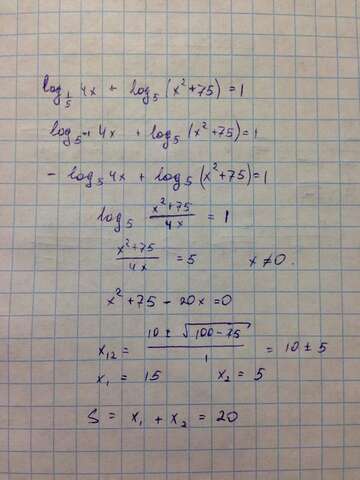 log_{1/5} 4x + log_5 (x² + 75) = 1
log_{5^{-1}} 4x + log_5 (x² + 75) = 1
- log_5 4x + log_5 (x² + 75) = 1
log_5 \frac{x² + 75}{4x} = 1
\frac{x² + 75}{4x} = 5 x ≠ 0.
x² + 75 - 20x = 0
x_{12} = \frac{10 ± \sqrt{100 - 75}}{1} = 10 ± 5
x_1 = 15 x_2 = 5
S = x_1 + x_2 = 20